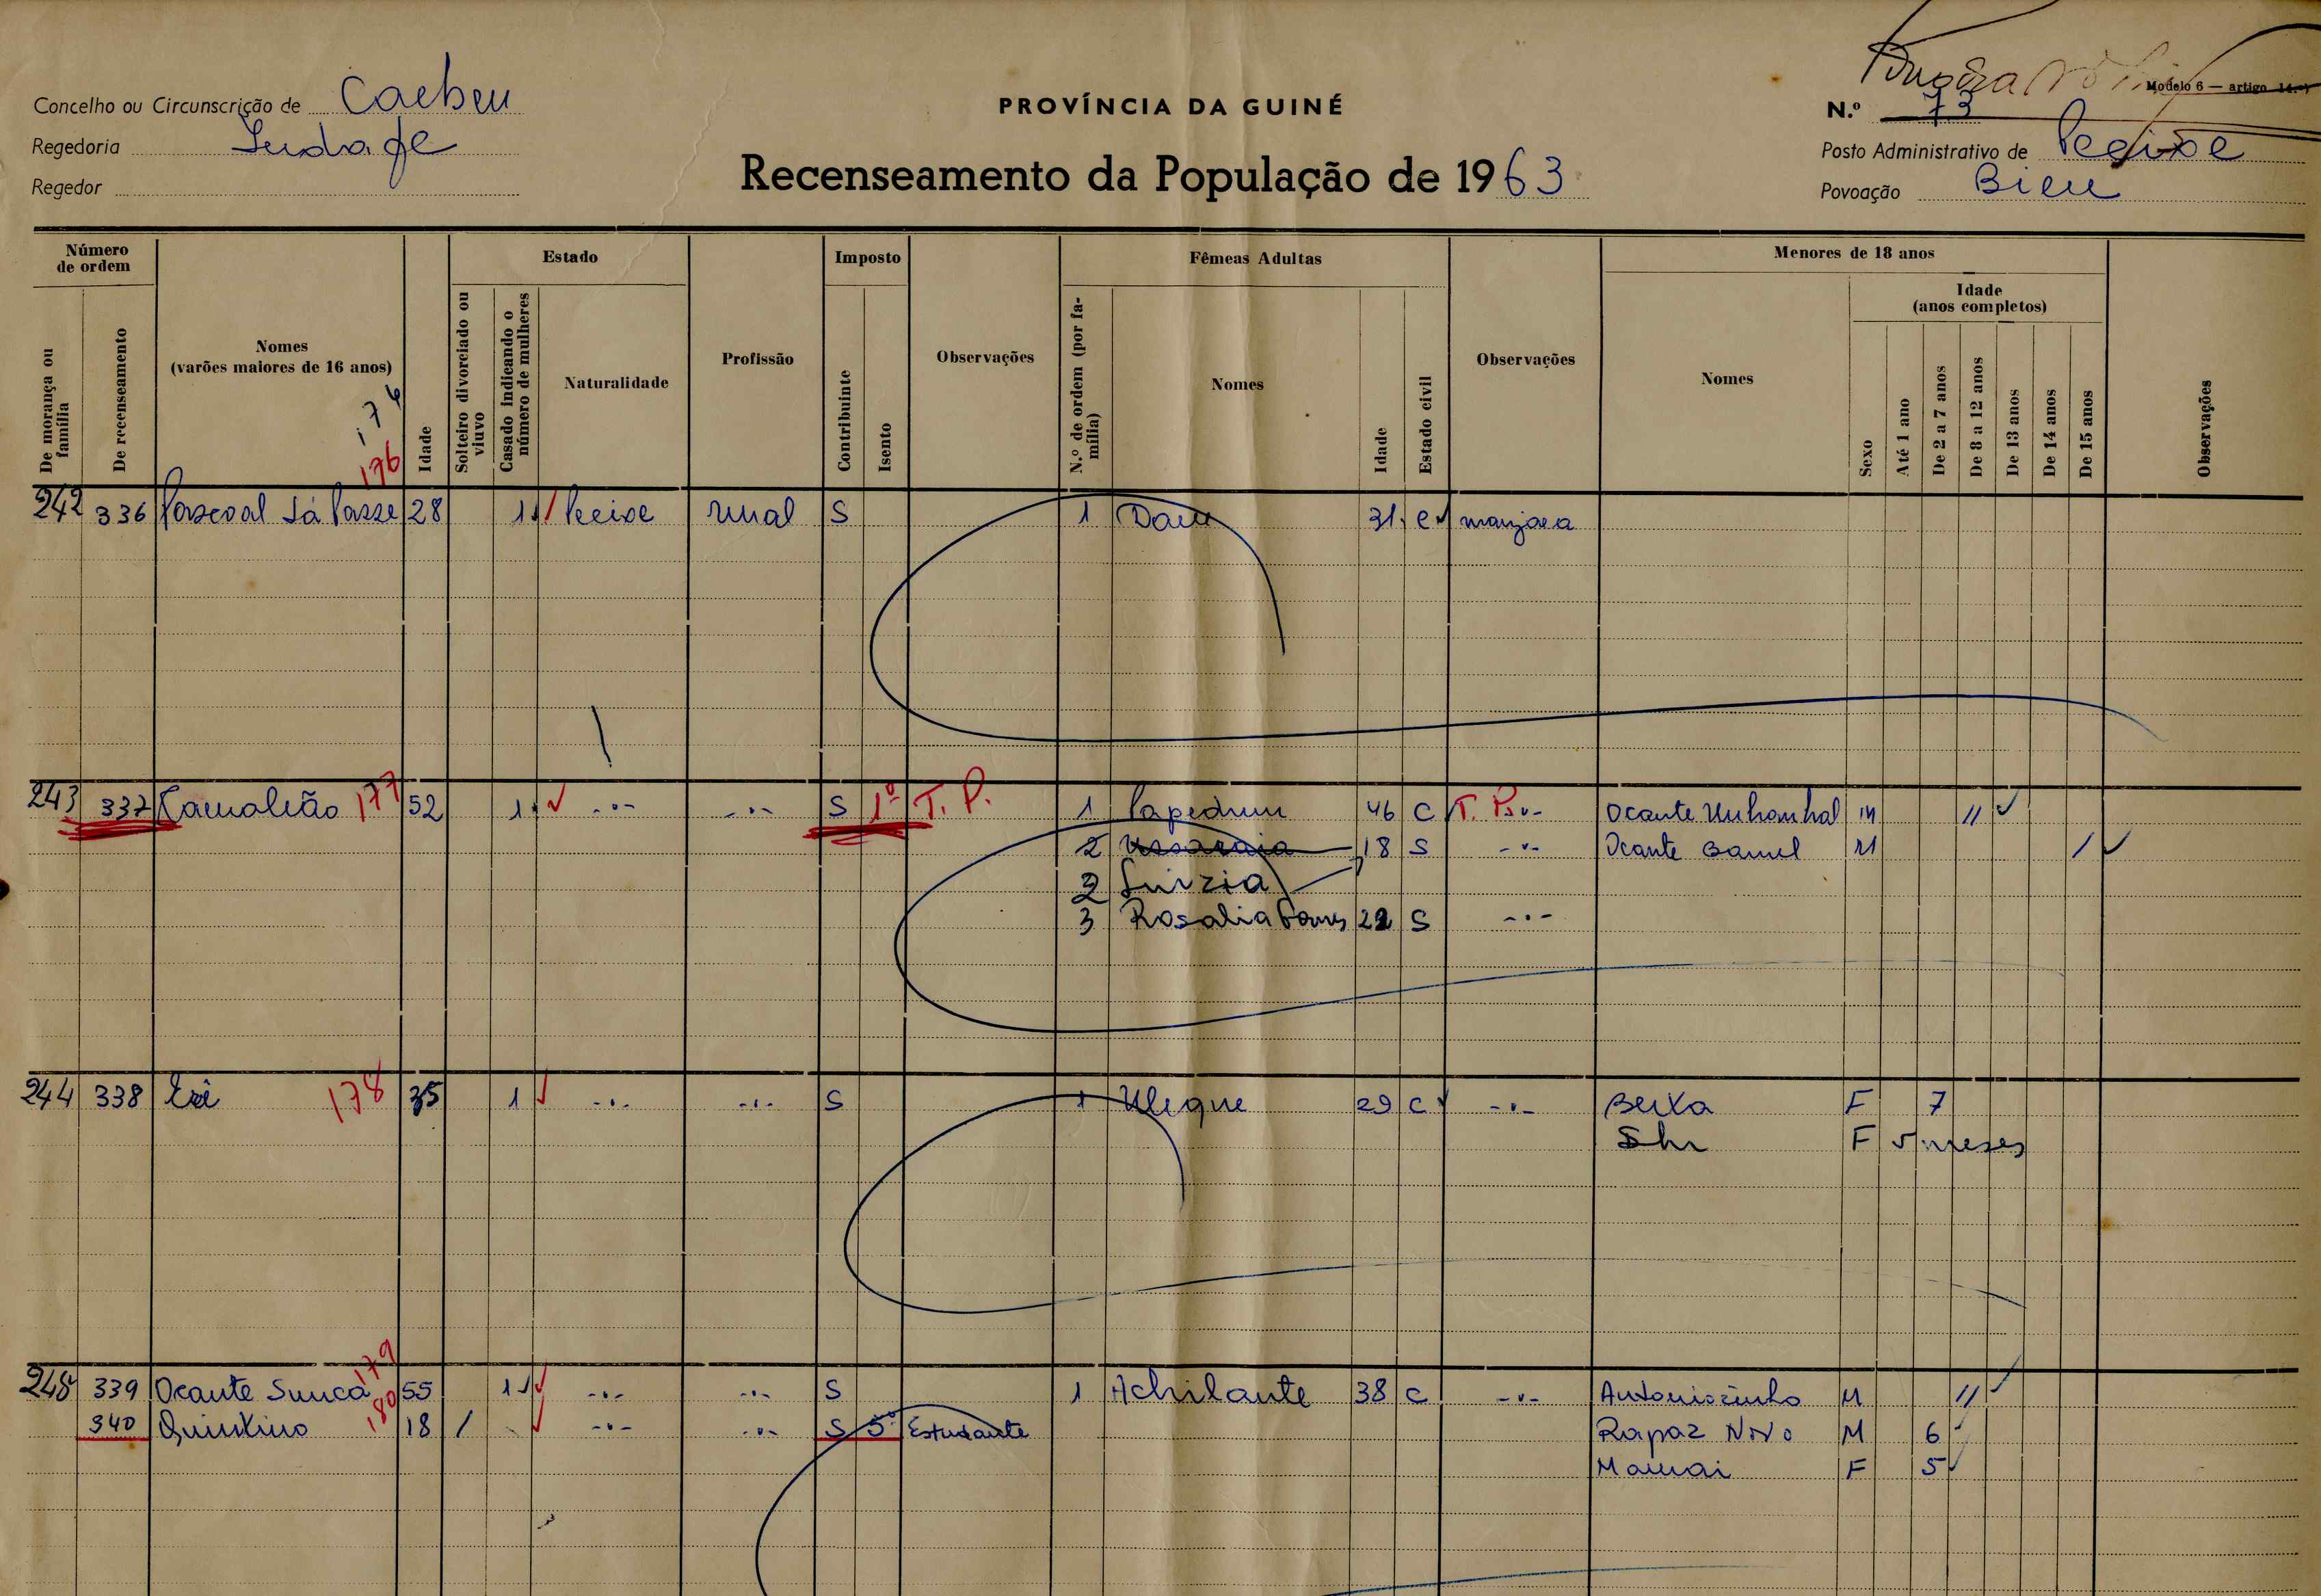 Modelo 6 — artigo 14.º)
Concelho ou Circunscrição de Cacheu
PROVÍNCIA DA GUINÉ
N.º 73
Regedoria
Posto Administrativo de Pecixe
Regedor
Recenseamento da População de 1963
Povoação Bieu
Número de ordem
Estado
Imposto
Fêmeas Adultas
Menores de 18 anos
Idade (anos completos)
De morança ou família
De recenseamento
Nomes (varões maiores de 16 anos)
Idade
Solteiro divorciado ou viuvo
Casado indicando o número de mulheres
Naturalidade
Profissão
Contribuinte
Isento
Observações
N.º de ordem (por família)
Nomes
Idade
Estado civil
Observações
Nomes
Sexo
Até 1 ano
De 2 a 7 anos
De 8 a 12 anos
De 13 anos
De 14 anos
De 15 anos
Observações
176
176
242 336 Pascoal Sá Passe 28 1 Pecixe rural S 1 Dau 31 C manjaca
243 337 Camaleão 177 52 1 -"- -"- S 1º T. P. 1 Papedrum 46 C T. P. -"- Ocante Unhonhal M 11
2 18 S -"- Ocante Samel M 1
2 Luizia
3 Rosalia Gomes 22 S -"-
244 338 178 35 1 -"- -"- S 1 Uleque 29 C -"- Beixa F 7
F 5 meses
179
245 339 Ocante Sunca 55 1 -"- -"- S 1 Achilante 38 C -"- Antoniozinho M 11
340 Quintino 180 18 / -"- -"- S 5º Estudante Rapaz Novo M 6
Mamai F 5